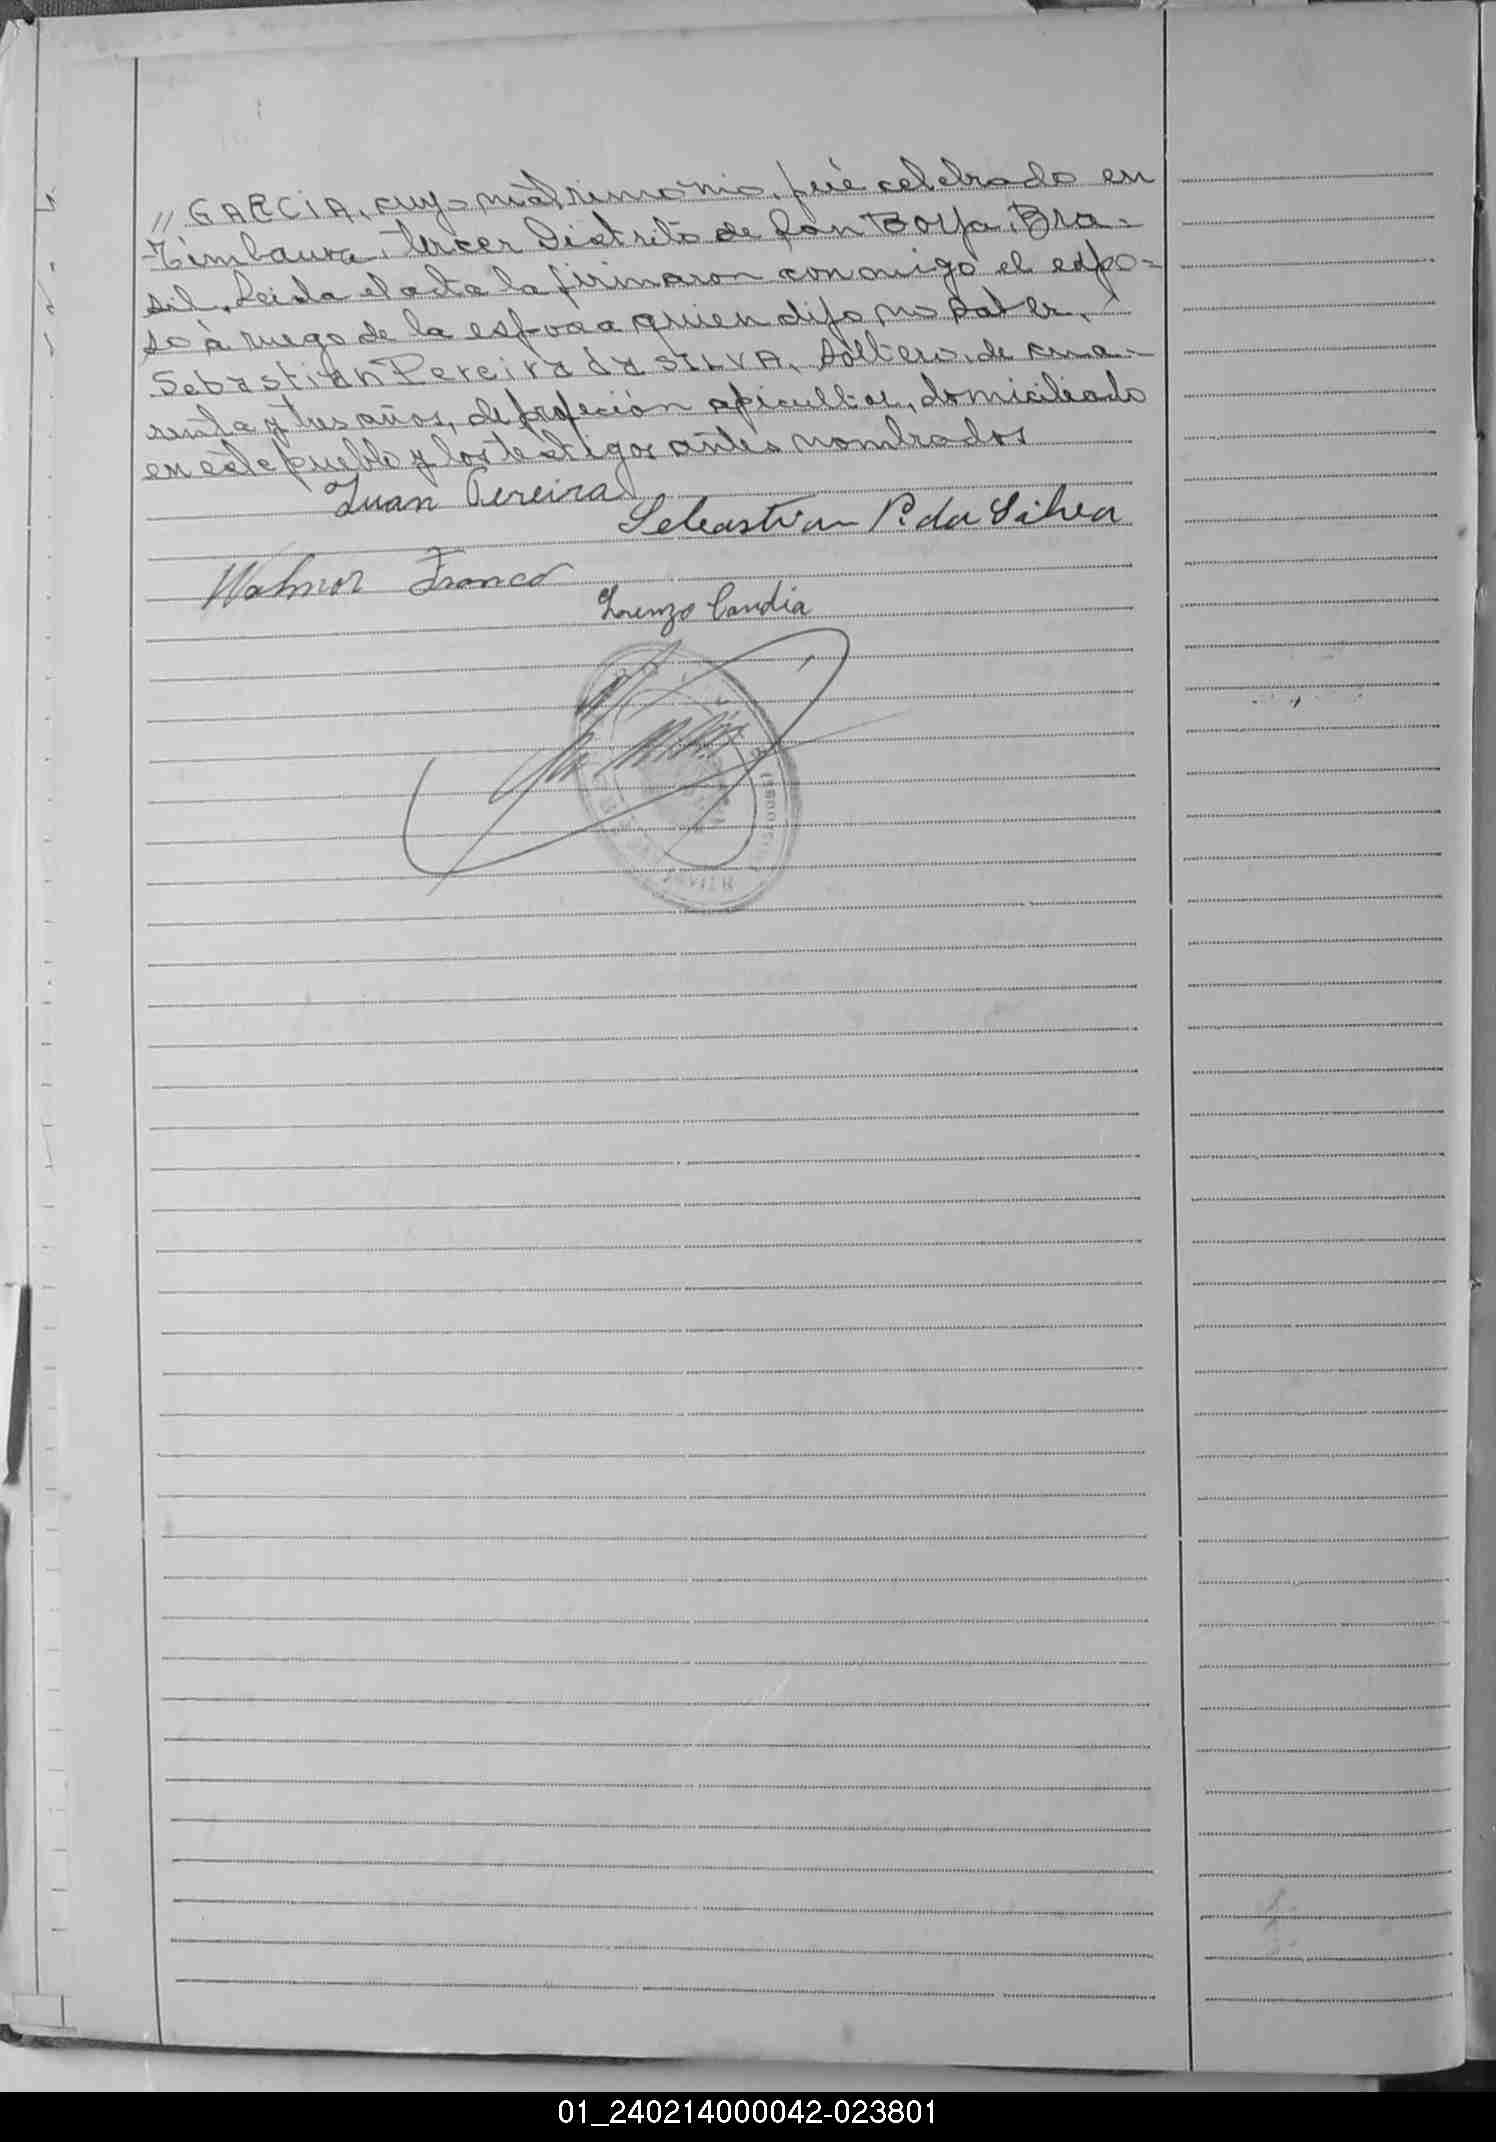 // GARCIA, cuyo matrimonio, fué celebrado en
Timbauva, tercer Distrito de San Borja, Bra-
sil, Leida el acta la firmaron conmigo el espo-
so à ruego de la esposa quien dijo no saber,
Sebastian Pereira da SILVA, soltero, de cua-
renta y tres años, de profeción apicultor, domiciliado
en este pueblo y los testigos antes nombrados
Juan Pereira
Sebastian P. da Silva
Walmor Franco
Lorenzo Candia
01_240214000042-023801